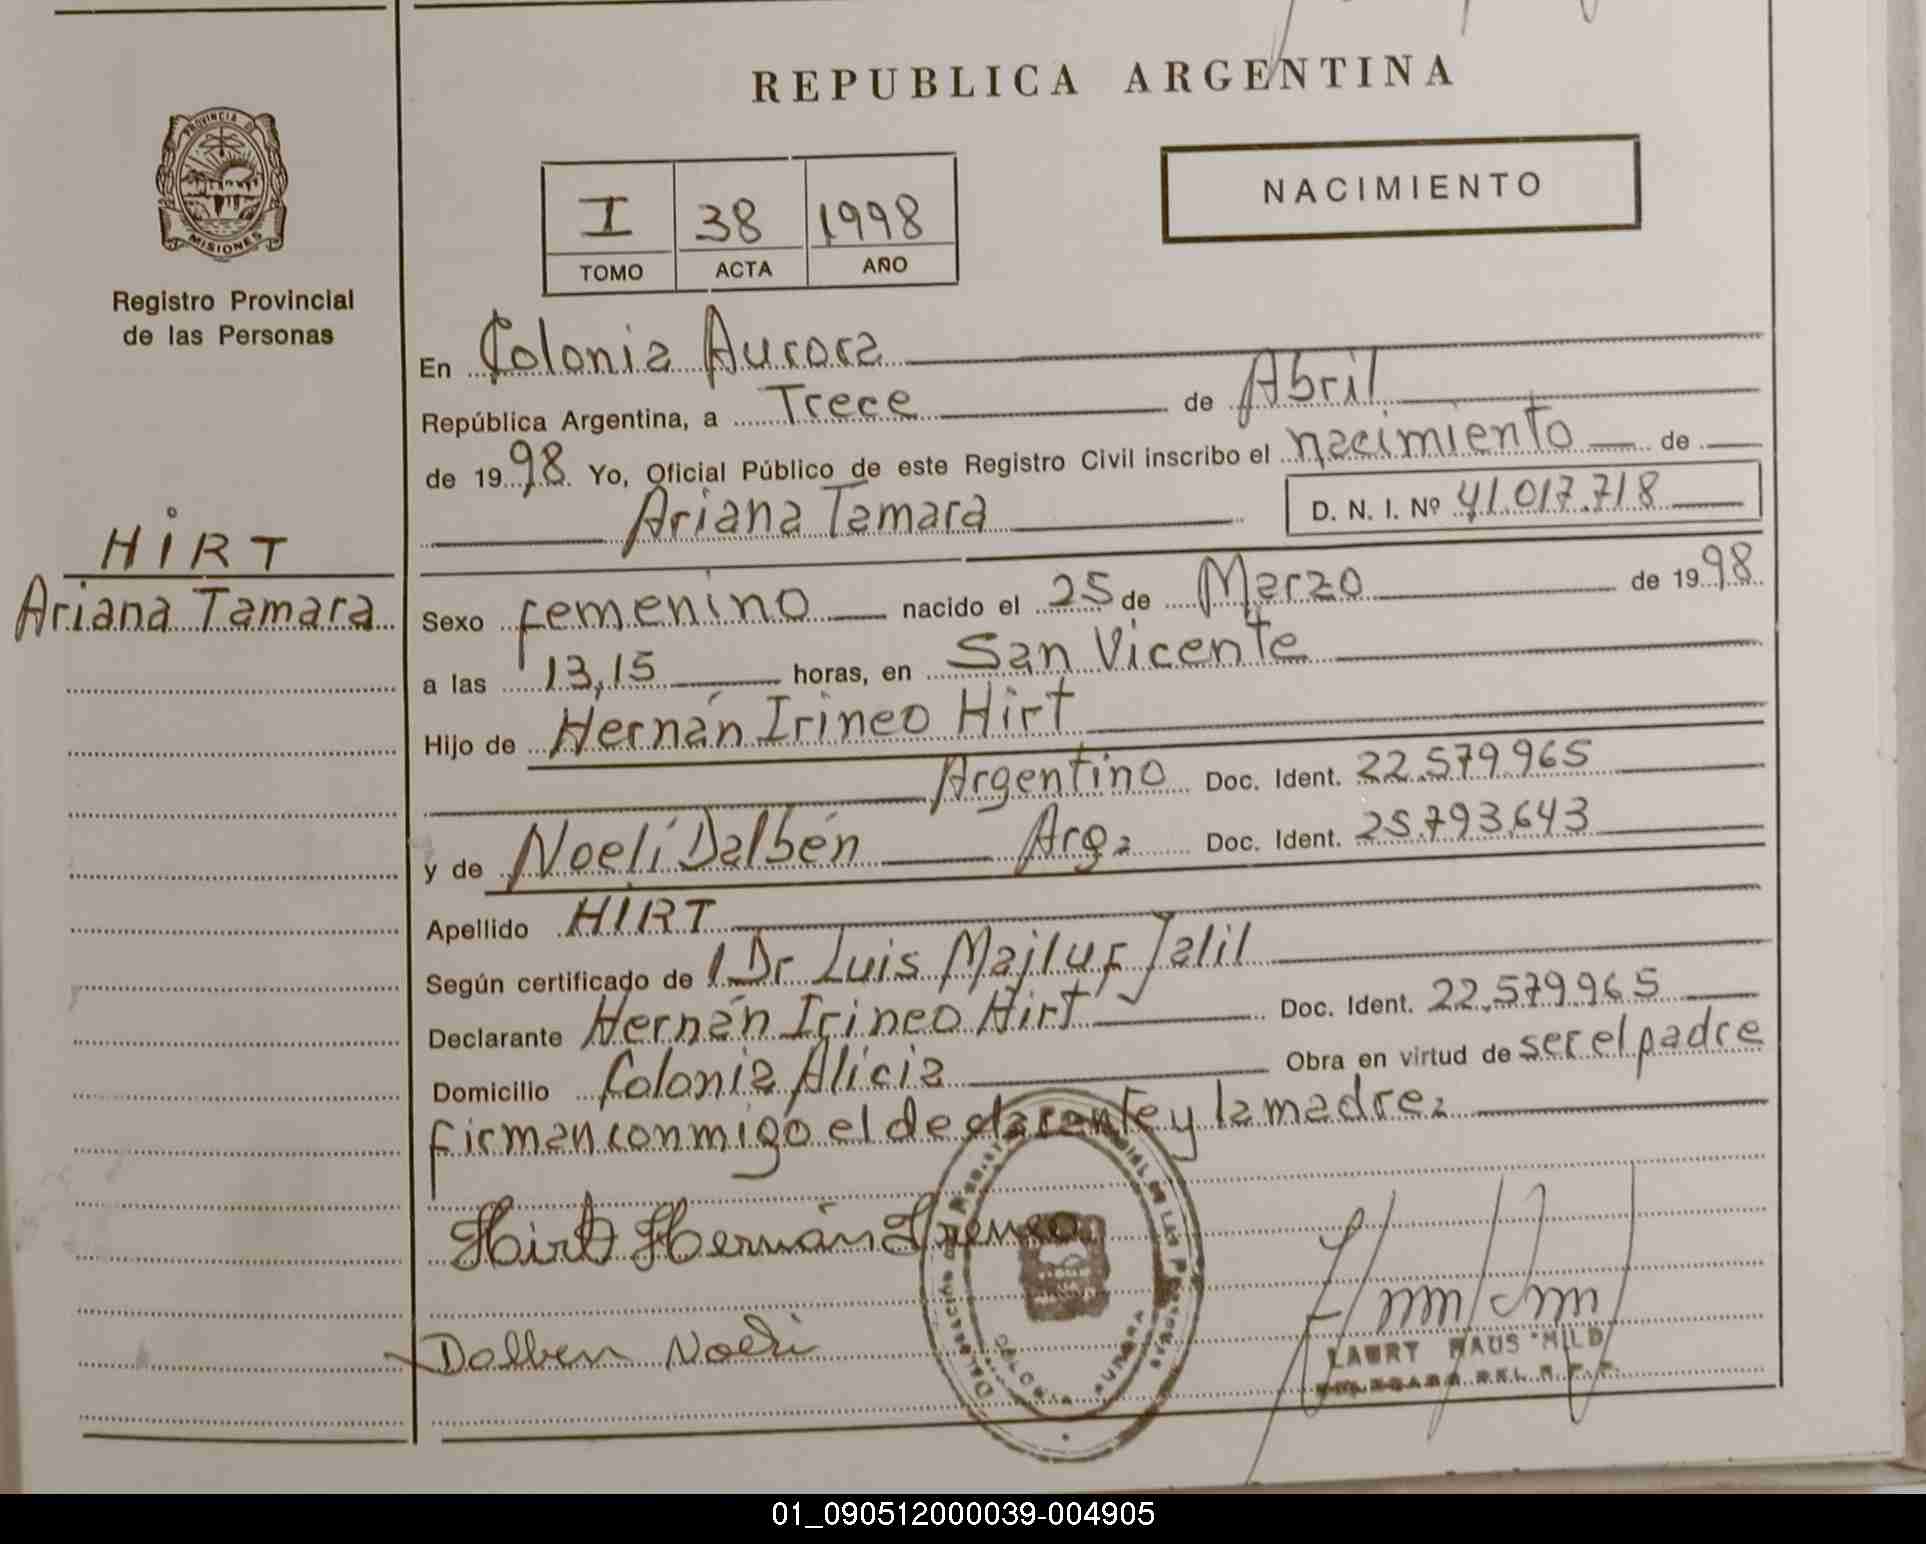 REPUBLICA ARGENTINA
PROVINCIA DE
MISIONES
Registro Provincial
de las Personas
HIRT
Ariana Tamara
NACIMIENTO
I 38 1998
TOMO ACTA AÑO
En Colonia Aurora
República Argentina, a Trece de Abril
de 1998 Yo, Oficial Público de este Registro Civil inscribo el nacimiento de
Ariana Tamara D. N. I. Nº 41.017.718
Sexo femenino nacido el 25 de Marzo de 1998
a las 13,15 horas, en San Vicente
Hijo de Hernán Irineo Hirt
Argentino Doc. Ident. 22.579.965
y de Noelí Dalbén Arg. Doc. Ident. 25.793.643
Apellido HIRT
Según certificado de Dr Luis Majluf Jalil
Declarante Hernán Irineo Hirt Doc. Ident. 22.579.965
Domicilio Colonia Alicia Obra en virtud de ser el padre
firman conmigo el declarante y la madre.
Hirt Hernán Irineo
Dalben Noeli
COLONIA AURORA
01_090512000039-004905